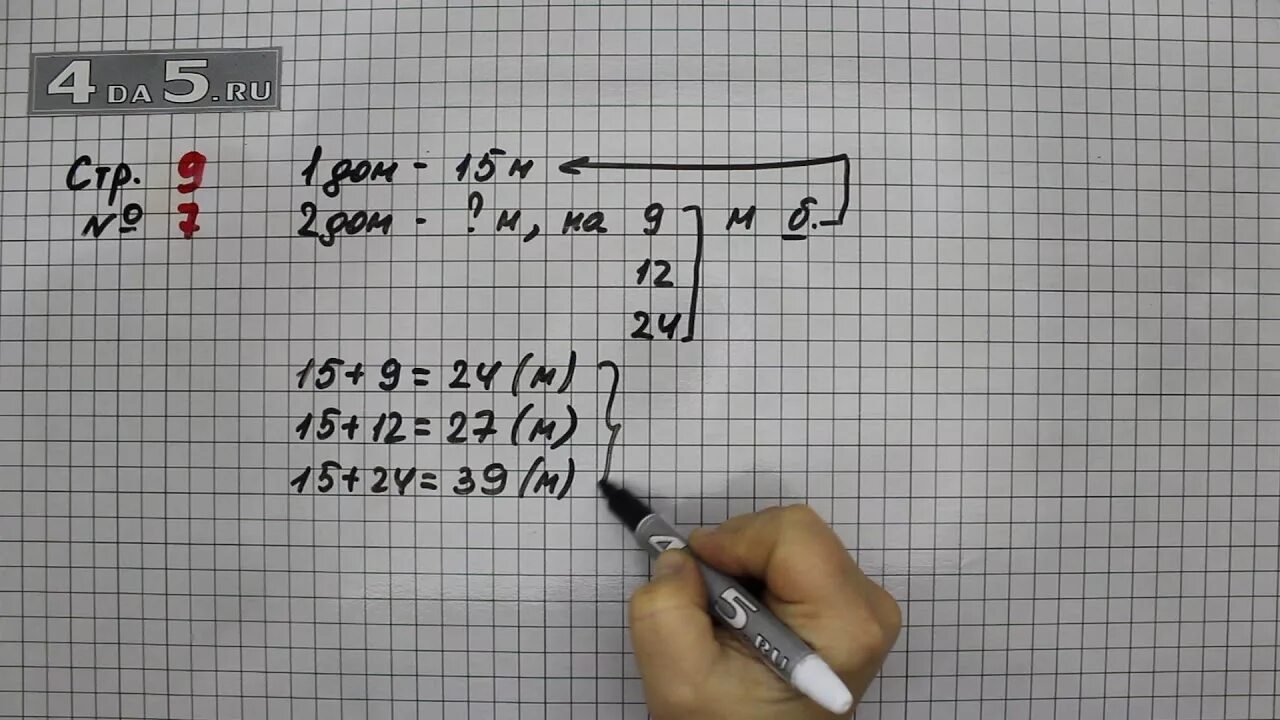 4 DA 5.RU
Стр. 9
№ 7
1 дом - 15 м
2 дом - ? м, на 9 м б.
12
24
15 + 9 = 24 (м)
15 + 12 = 27 (м)
15 + 24 = 39 (м)
4
5.RU